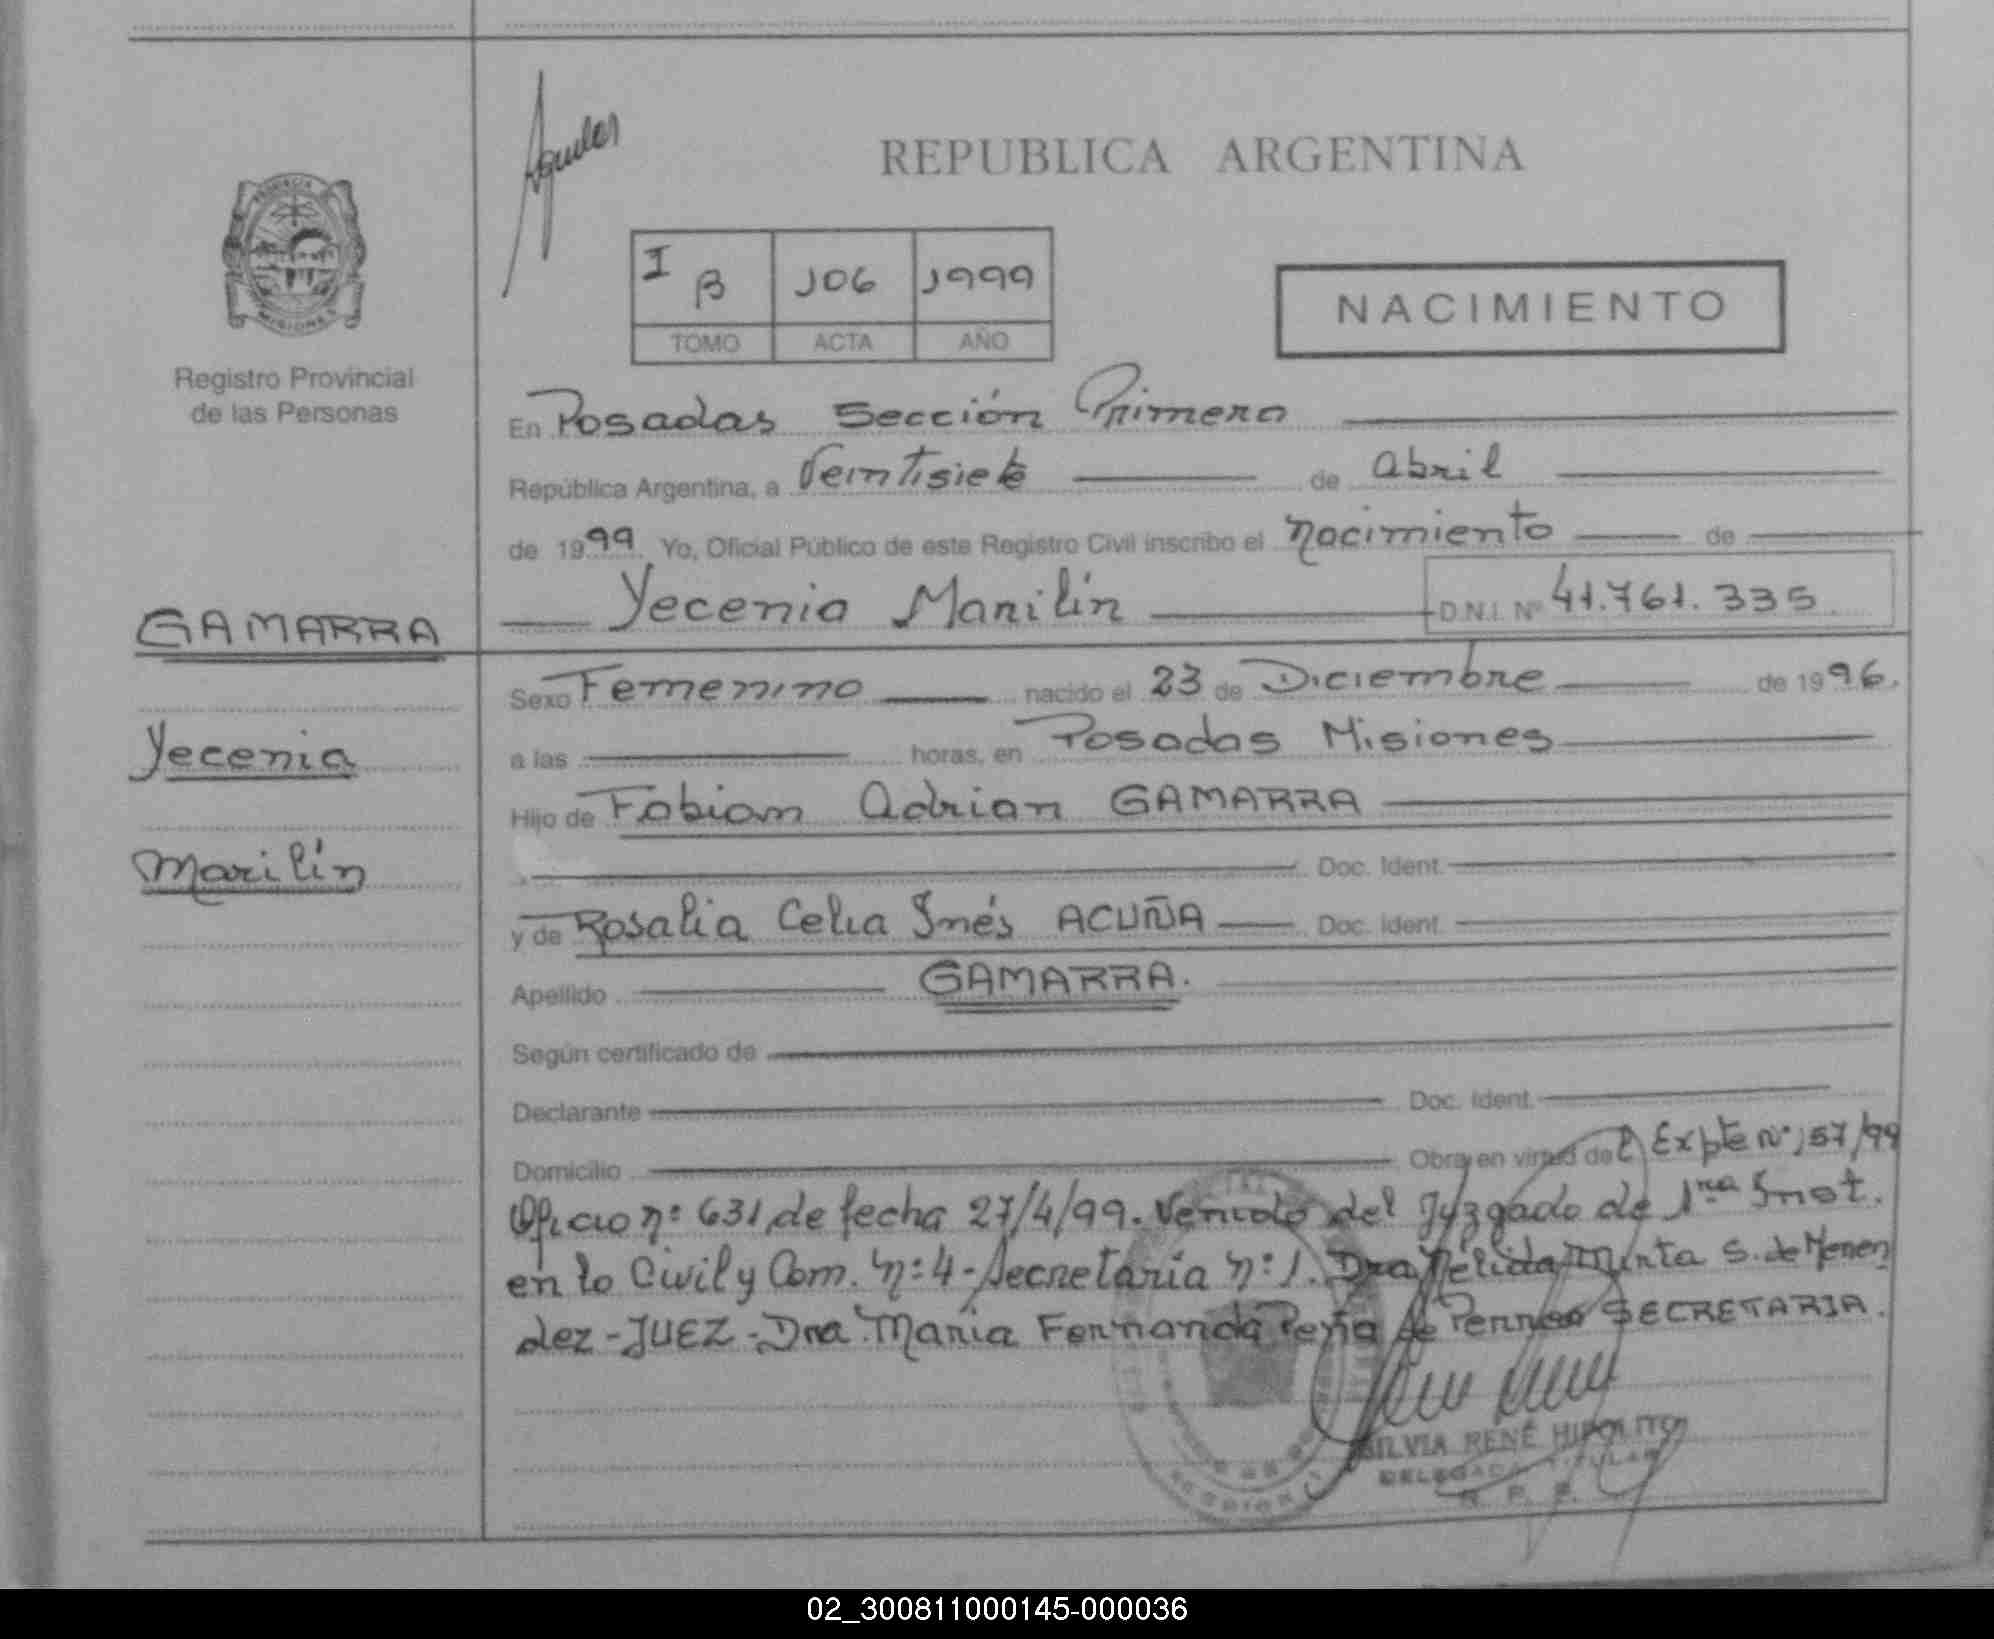 REPUBLICA ARGENTINA
I B 106 1999
TOMO ACTA AÑO
NACIMIENTO
PROVINCIA
MISIONES
Registro Provincial
de las Personas
En Posadas Sección Primera
República Argentina, a Veintisiete de abril
de 1999 Yo, Oficial Público de este Registro Civil inscribo el nacimiento de
GAMARRA
Yecenia Marilín D.N.I. Nº 41.761.335
Sexo Femenino nacido el 23 de Diciembre de 1996.
Yecenia
a las horas, en Posadas Misiones
Hijo de Fabian Adrian GAMARRA
Marilín
Doc. Ident.
y de Rosalia Celia Inés ACUÑA Doc. Ident.
Apellido GAMARRA.
Según certificado de
Declarante Doc. Ident.
Domicilio Obra en virtud del Expte Nº 157/99
Oficio nº 631 de fecha 27/4/99. Venido del Juzgado de 1ra Inst.
en lo Civil y Com. nº 4 - Secretaria nº 1. Dra Nélida Mirta S. de Menen
dez - JUEZ - Dra. Maria Fernanda Peña de SECRETARIA.
SILVIA RENÉ HIPOLITO
DELEGADA TITULAR
R. P. P.
02_300811000145-000036